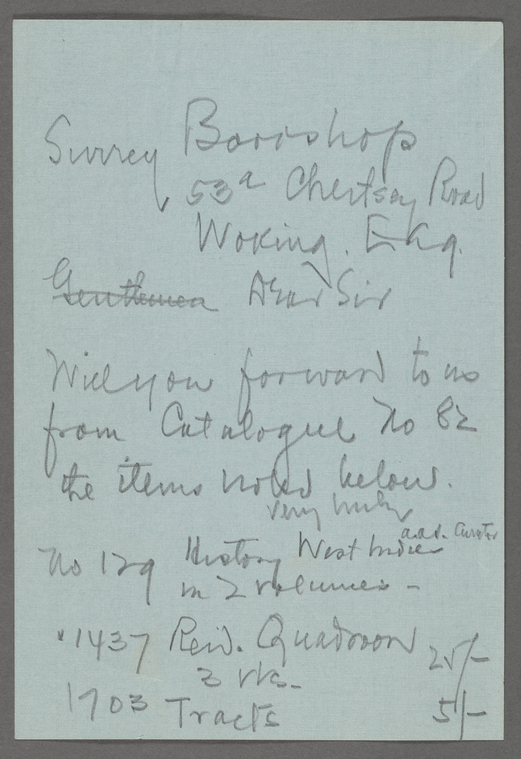 Surrey Bookshop
53a Chertsey Road
Woking. Eng.
Gentlemen Dear Sir
Will you forward to us
from Catalogue No 82
the items noted below.
Very truly
a.a.s. Curator
No 129 History West Indies
in 2 volumes -
" 1437 Reid. Quadroon 25/-
3 vls.
1703 Tracts 5/-